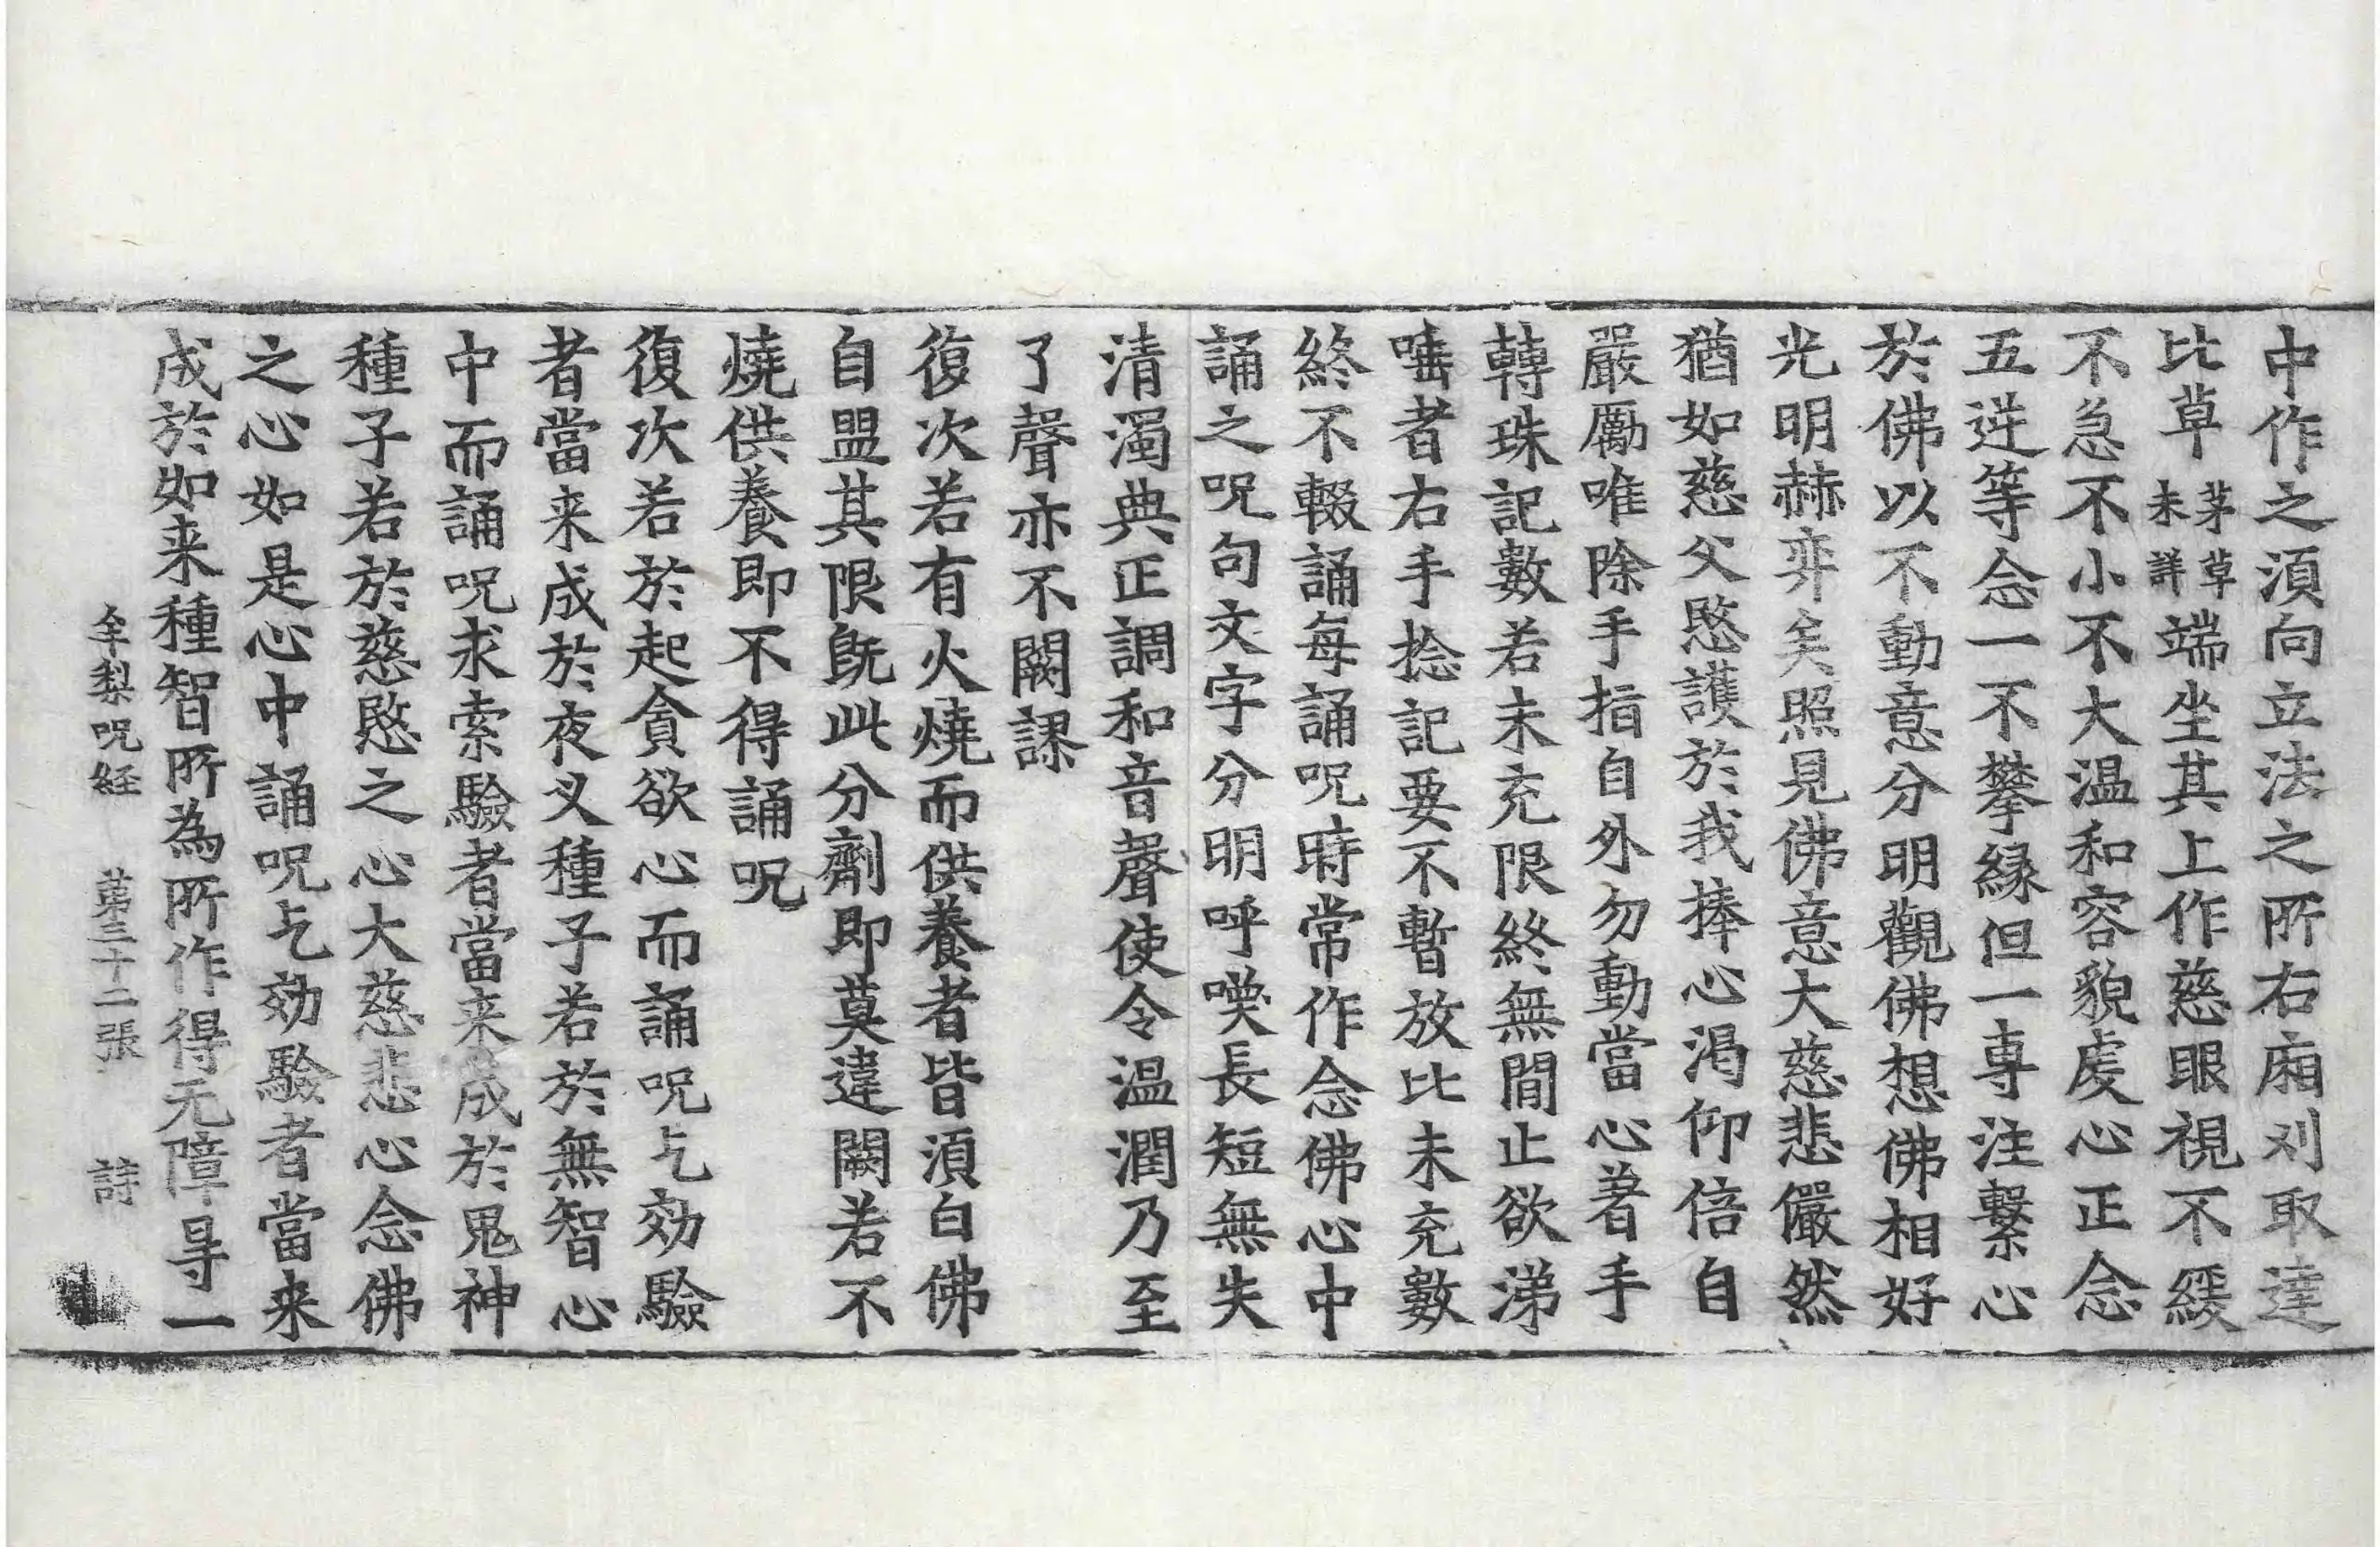 中作之湏向立法之所右廂刈取達
比草茅草未詳端坐其上作慈眼視不緩
不急不小不大温和容貌虔心正念
五逆等念一不攀縁但一専注繫心
於佛以不動意分明觀佛想佛相好
光明赫弈矣照見佛意大慈悲儼然
猶如慈父愍護於我捧心渇仰倍自
嚴厲唯除手指自外勿動當心著手
轉珠記數若未充限終無間止欲涕
唾者右手捻記要不暫放比未充數
終不輟誦每誦呪時常作念佛心中
誦之呪句文字分明呼嘆長短無失
清濁典正調和音聲使令温潤乃至
了聲亦不闕謬
復次若有火燒而供養者皆湏白佛
自盟其限既此分劑即莫違闕若不
燒供養即不得誦呪
復次若於起貪欲心而誦呪乞効驗
者當来成於夜叉種子若於無智心
中而誦呪求索驗者當来成於鬼神
種子若於慈愍之心大慈悲心念佛
之心如是心中誦呪乞効驗者當来
成於如来種智所為所作得无障㝵一
牟梨呪経 第三十二張 詩